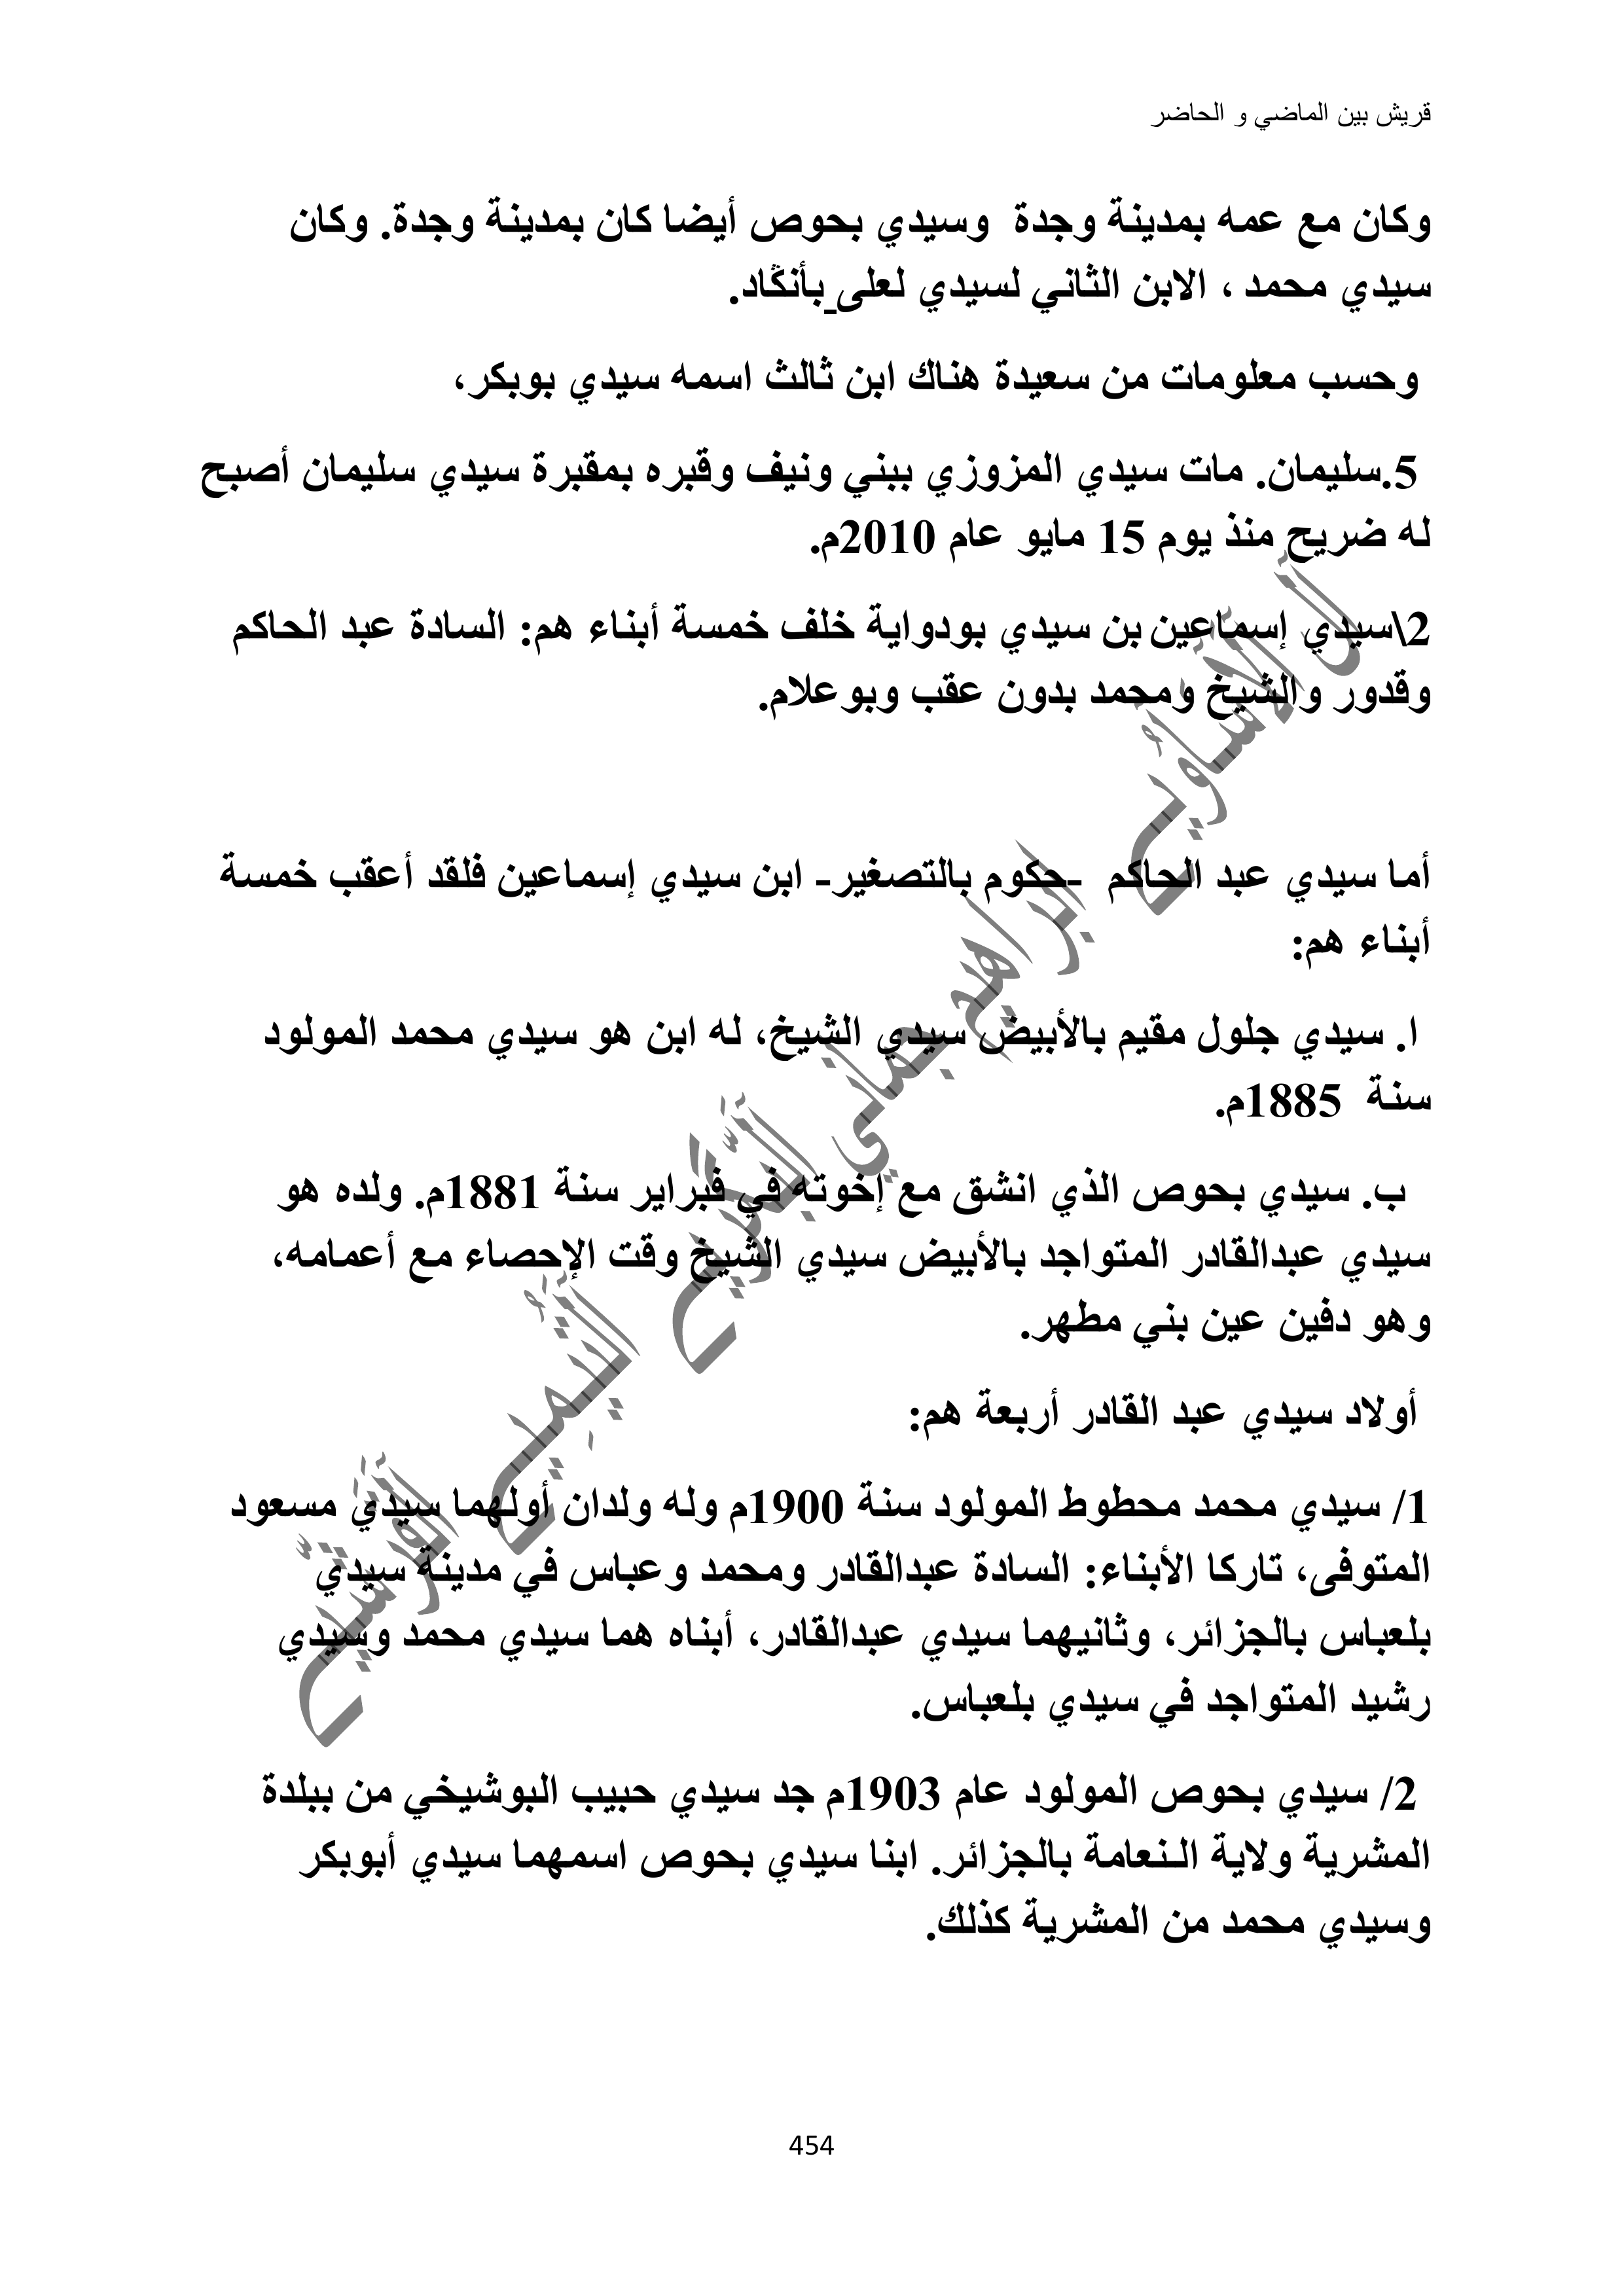 قريش بين الماضي و الحاضر
وكان مع عمه بمدينة وجدة وسيدي بحوص أيضا كان بمدينة وجدة. وكان
سيدي محمد ، الابن الثاني لسيدي لعلى بأنڭاد.
وحسب معلومات من سعيدة هناك ابن ثالث اسمه سيدي بوبكر،
5.سليمان. مات سيدي المزوزي ببني ونيف وقبره بمقبرة سيدي سليمان أصبح
له ضريح منذ يوم 15 مايو عام 2010م.
2\سيدي إسماعين بن سيدي بودواية خلف خمسة أبناء هم: السادة عبد الحاكم
وقدور والشيخ ومحمد بدون عقب وبوعلام.
أما سيدي عبد الحاكم -حكوم بالتصغير- ابن سيدي إسماعين فلقد أعقب خمسة
أبناء هم:
ا. سيدي جلول مقيم بالأبيض سيدي الشيخ، له ابن هو سيدي محمد المولود
سنة 1885م.
ب. سيدي بحوص الذي انشق مع إخوته في فبراير سنة 1881م. ولده هو
سيدي عبدالقادر المتواجد بالأبيض سيدي الشيخ وقت الإحصاء مع أعمامه،
وهو دفين عين بني مطهر.
أولاد سيدي عبد القادر أربعة هم:
1/ سيدي محمد محطوط المولود سنة 1900م وله ولدان أولهما سيدي مسعود
المتوفى، تاركا الأبناء: السادة عبدالقادر ومحمد وعباس في مدينة سيدي
بلعباس بالجزائر، وثانيهما سيدي عبدالقادر، أبناه هما سيدي محمد وسيدي
رشيد المتواجد في سيدي بلعباس.
2/ سيدي بحوص المولود عام 1903م جد سيدي حبيب البوشيخي من ببلدة
المشرية ولاية النعامة بالجزائر. ابنا سيدي بحوص اسمهما سيدي أبوبكر
وسيدي محمد من المشرية كذلك.
454